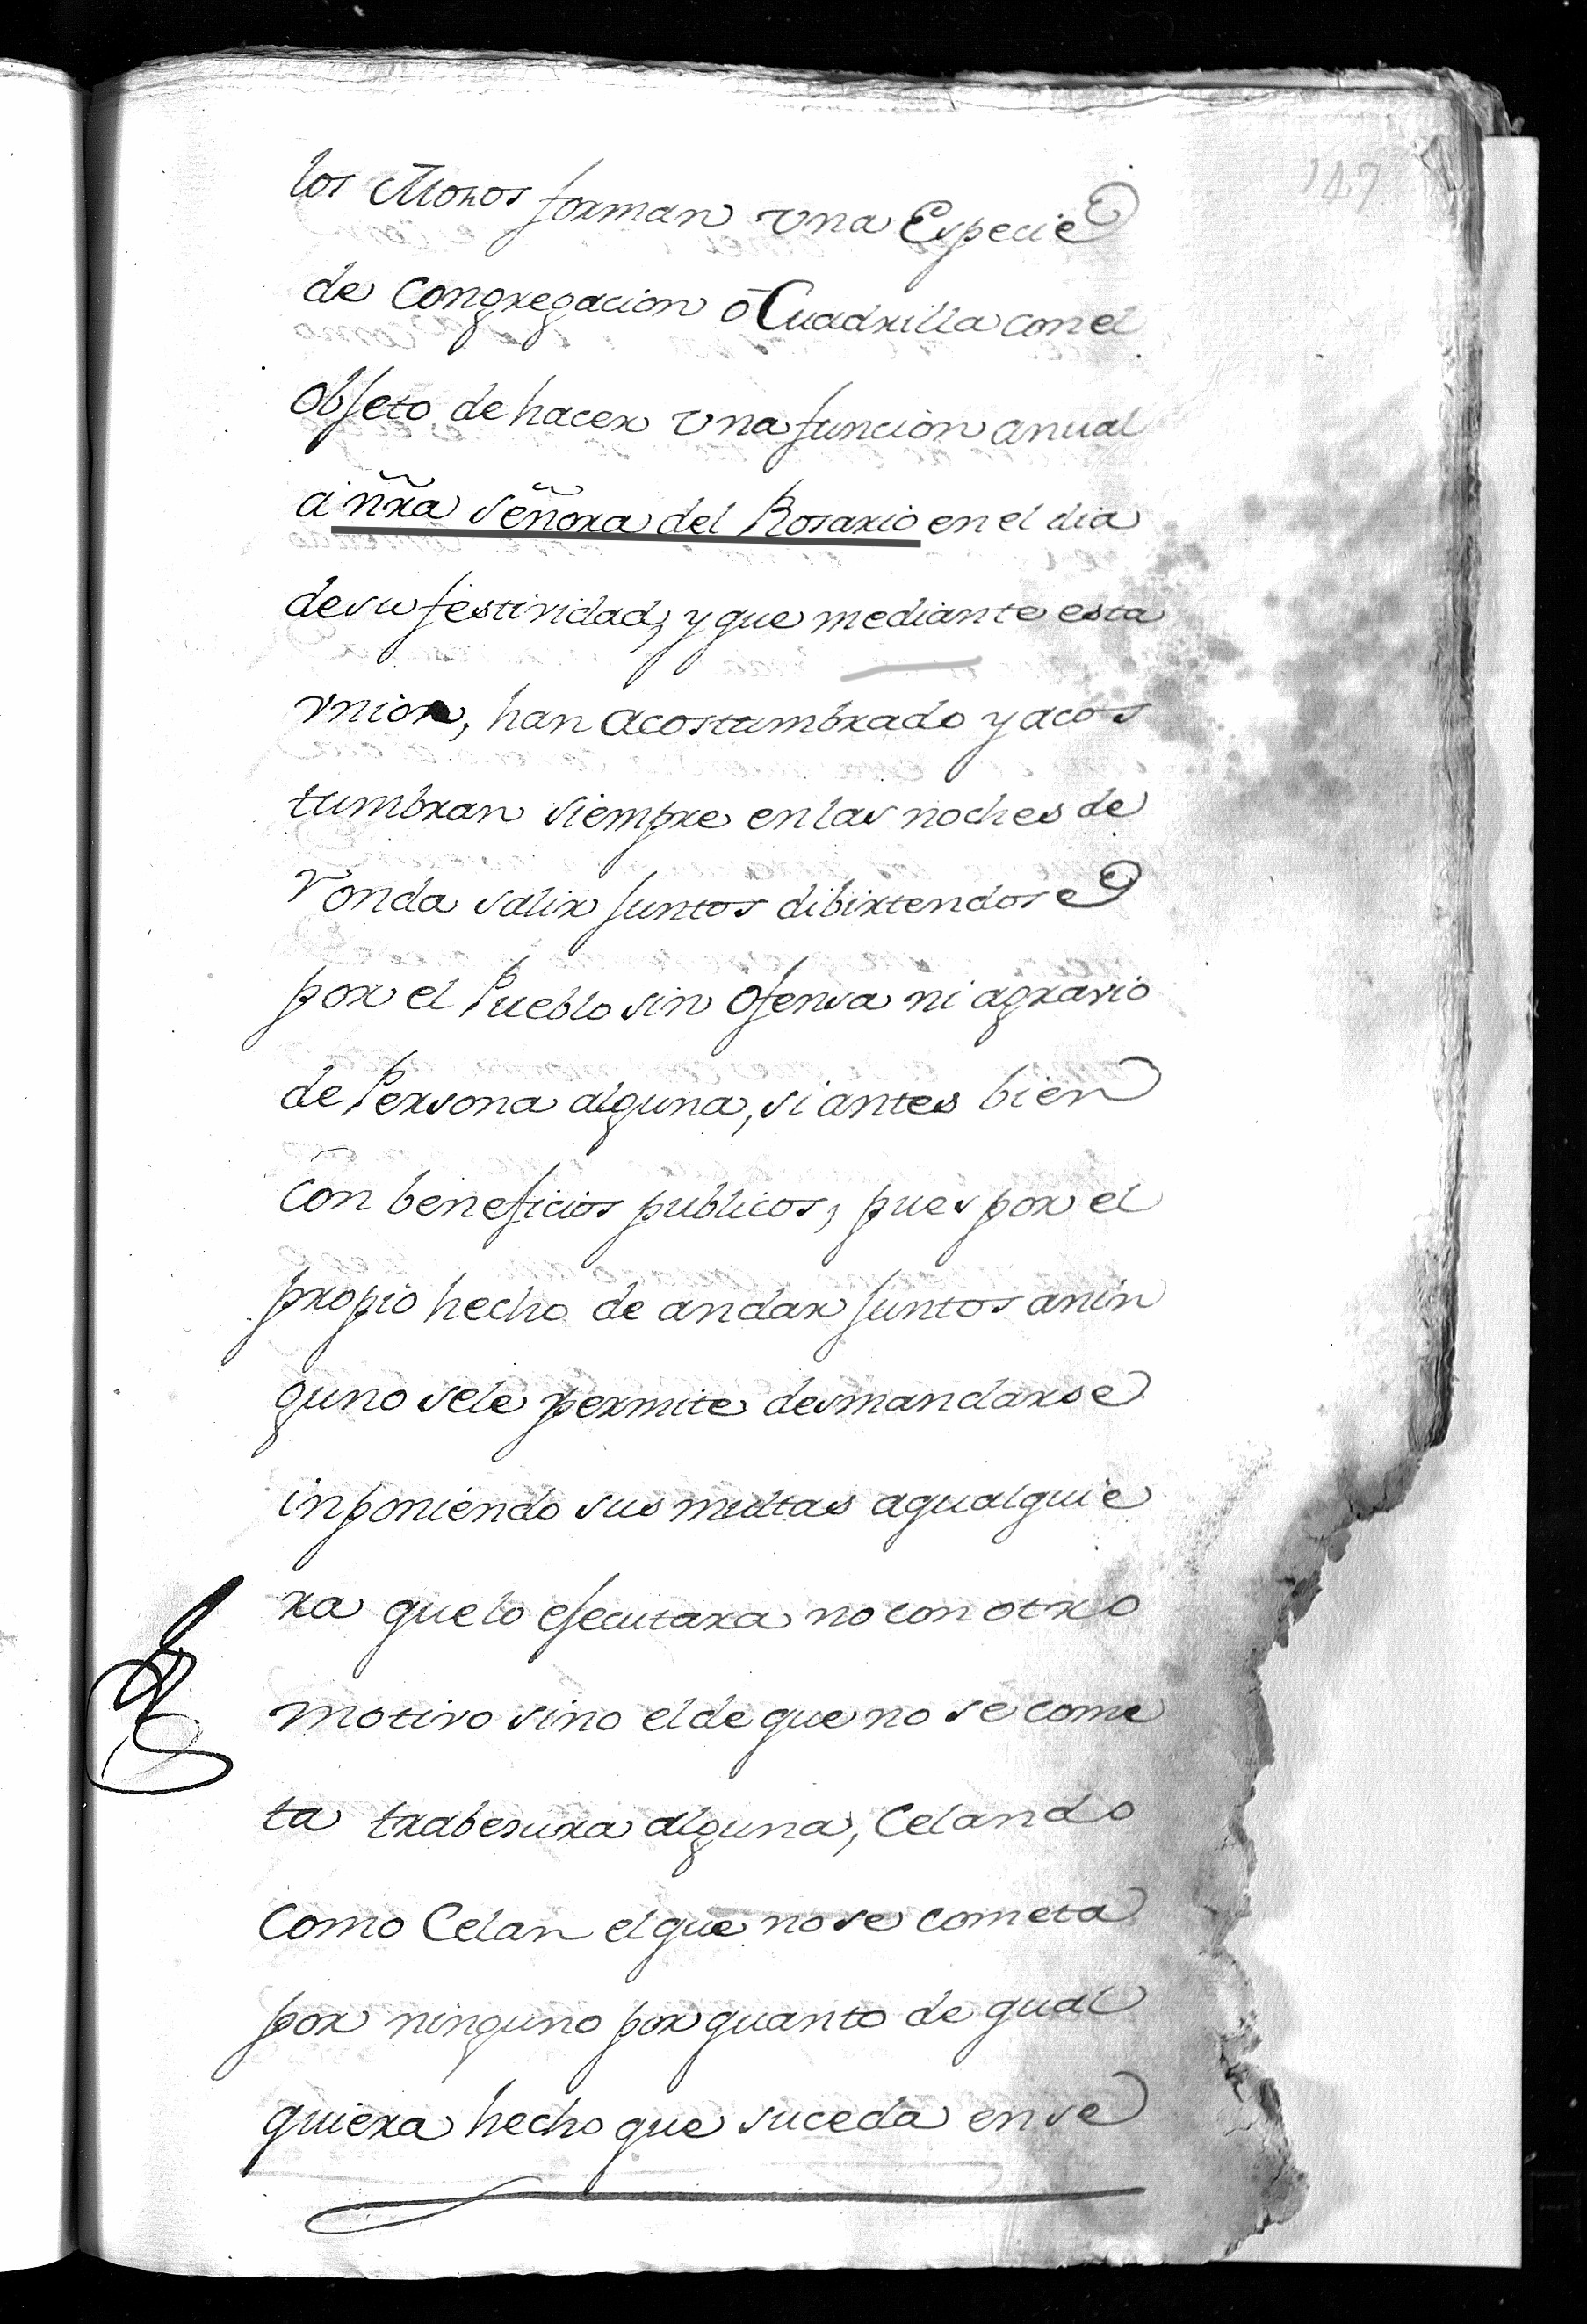 147
los Mozos forman una Especie
de Congregacion ó Cuadrilla con el
objeto de hacer una funcion anual
a nr̃a Señora del Rosario en el dia
de su festividad, y que mediante esta
union, han acostumbrado y acos
tumbran siempre en las noches de
ronda salir juntos dibirtendose
por el Pueblo sin ofensa ni agravio
de Persona alguna, si antes bien
con beneficios publicos, pues por el
propio hecho de andar juntos a nin
guno se le permite desmandarse
inponiendo sus multas a qualquie
ra que lo ejecutara no con otro
motivo sino el de que no se come
ta trabesura alguna, Celando
como Celan el que no se cometa
por ninguno por quanto de qual
quiera hecho que suceda en se